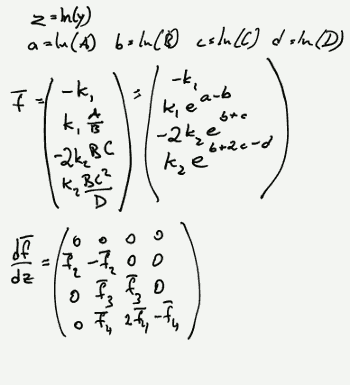 z = ln(y)
a = ln(A) b = ln(B) c = ln(C) d = ln(D)
f̄ = ( -k₁ ) = ( -k₁ )
( k₁ A/B ) ( k₁ e^{a-b} )
( -2k₂ BC ) ( -2k₂ e^{b+c} )
( k₂ BC²/D ) ( k₂ e^{b+2c-d} )
df̄/dz = ( 0 0 0 0 )
( f̄₂ -f̄₂ 0 0 )
( 0 f̄₃ f̄₃ 0 )
( 0 f̄₄ 2f̄₄ -f̄₄ )